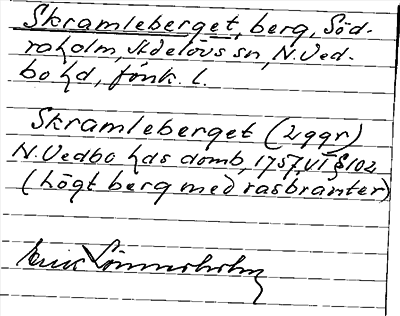 Skramleberget, berg, Söd-
raholm, Adelövs sn, N. Ved-
bo hd, Jönk. l.
Skramleberget (2 ggr)
N. Vedbo hds domb, 1757, VT § 102
(högt berg med rasbranter)
Erik